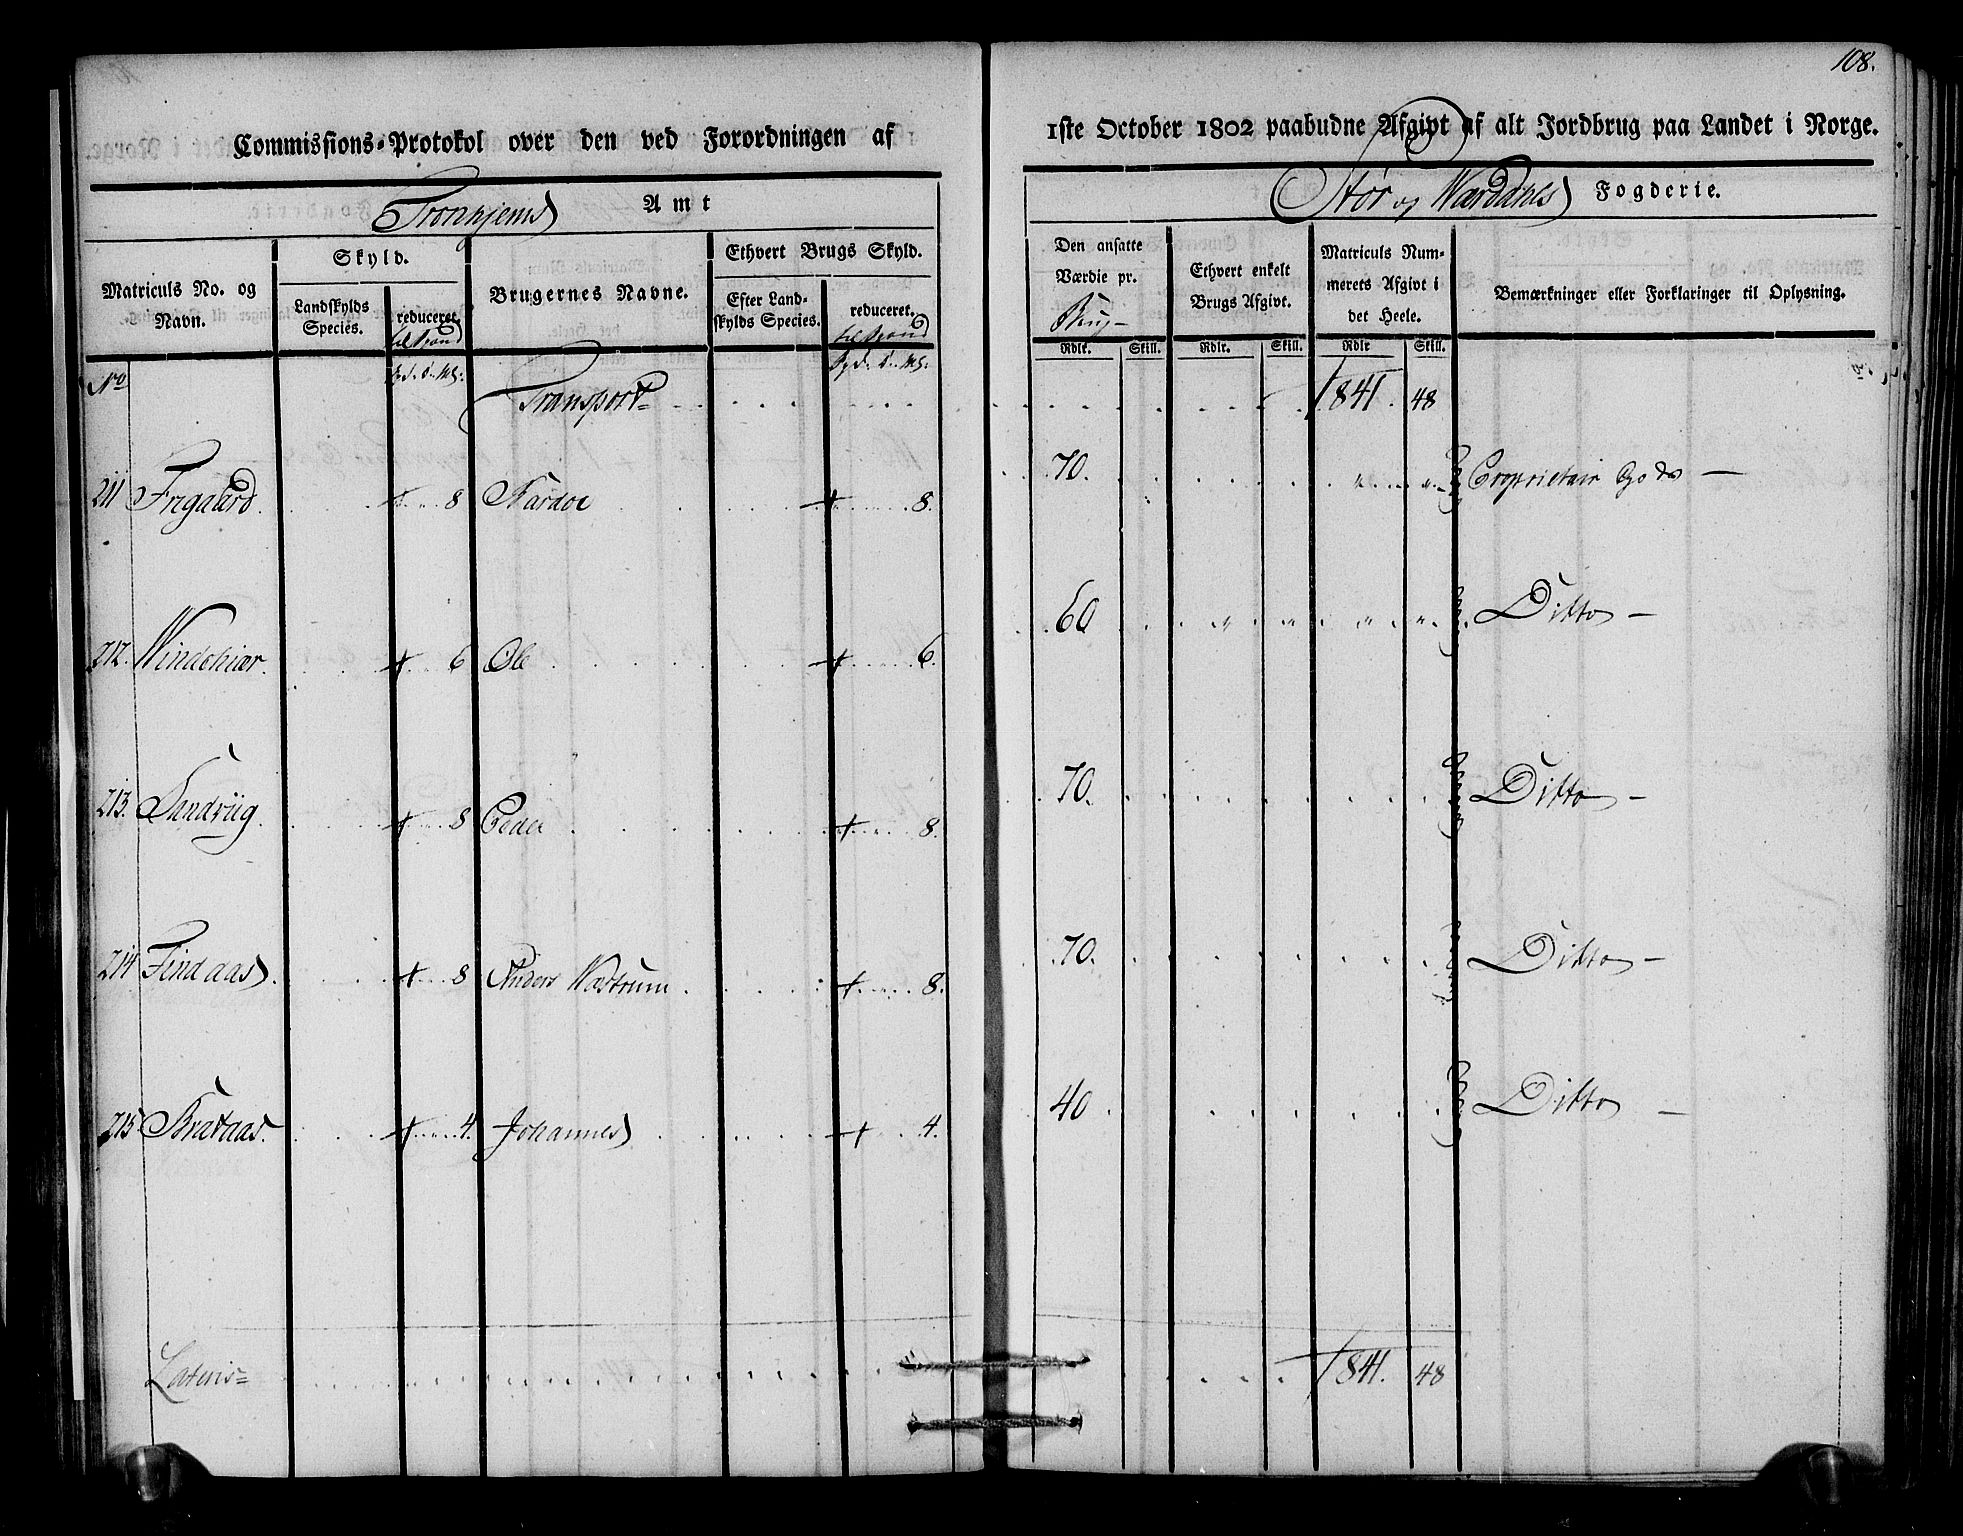 108.
Commissions-Protokol over den ved Forordningen af 1ste October 1802 paabudne Afgivt af alt Jordbrug paa Landet i Norge.
Tronhjems Amt
Stør og Værdahls Fogderie.
Matriculs No. og Navn.
Skyld.
Landskylds Species.
reduceret.
Brugernes Navne.
Ethvert Brugs Skyld.
Efter Landskylds Species.
reduceret.
Den ansatte Værdie pr. Brug
Ethvert enkelt Brugs Afgivt.
Matriculs Nummerets Afgivt i det Heele.
Bemærkninger eller Forklaringer til Oplysning.
Rdlr. Skill. Rdlr. Skill. Rdlr Skill.
No
Transport 1841. 48
211 8 8. 70. Proprietair Gods —
212. 6 Ole 6. 60. Ditto —
213. Sandviig. 8 Peder 8. 70. Ditto —
214 Findaas. 8 Anders 8. 70. Ditto —
215 Brataas. 4. Johannes 4. 40. Ditto —
Lateris 1841. 48